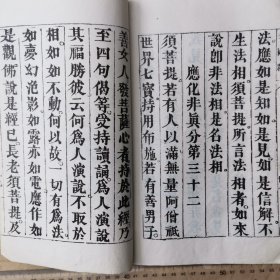 法應如是知如是見如是信解不
生法相須菩提所言法相者如來
說即非法相是名法相
應化非眞分第三十二
須菩提若有人以滿無量阿僧祇
世界七寶持用布施若有善男子
善女人發菩薩心者持於此經乃
至四句偈等受持讀誦爲人演說
其福勝彼云何爲人演說不取於
相如如不動何以故一切有爲法
如夢幻泡影如露亦如電應作如
是觀佛說是經已長老須菩提及